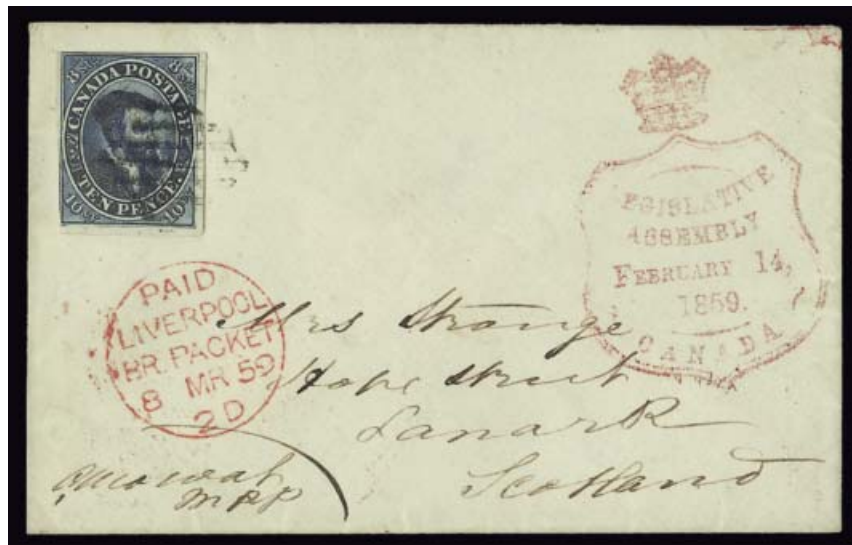 8
CANADA POSTAGE
8
TEN PENCE.
10
10
LEGISLATIVE
ASSEMBLY
FEBRUARY 14,
1859.
CANADA
PAID
LIVERPOOL
BR. PACKET
8 MR 59
2D
Mrs Strange
Hope Street
Lanark
Scotland
MPP